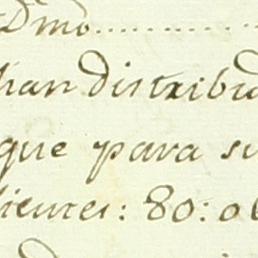 Dmo..............
han distribu
que para su
dientes: 80: ob